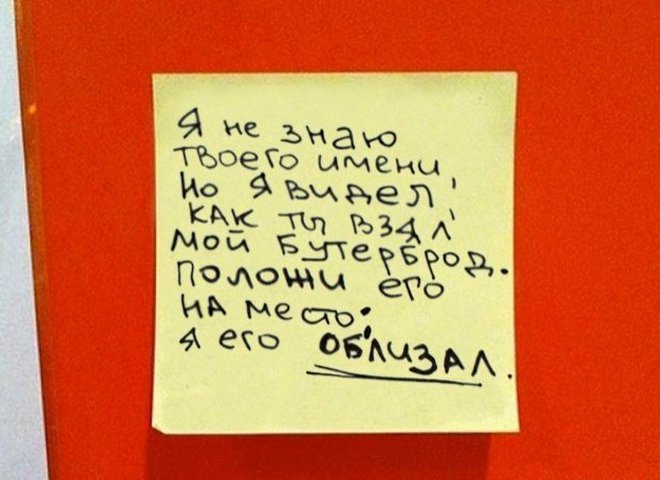 Я не знаю
твоего имени,
но я видел,
как ты взял
мой бутерброд.
Положи его
на место:
я его ОБЛИЗАЛ.